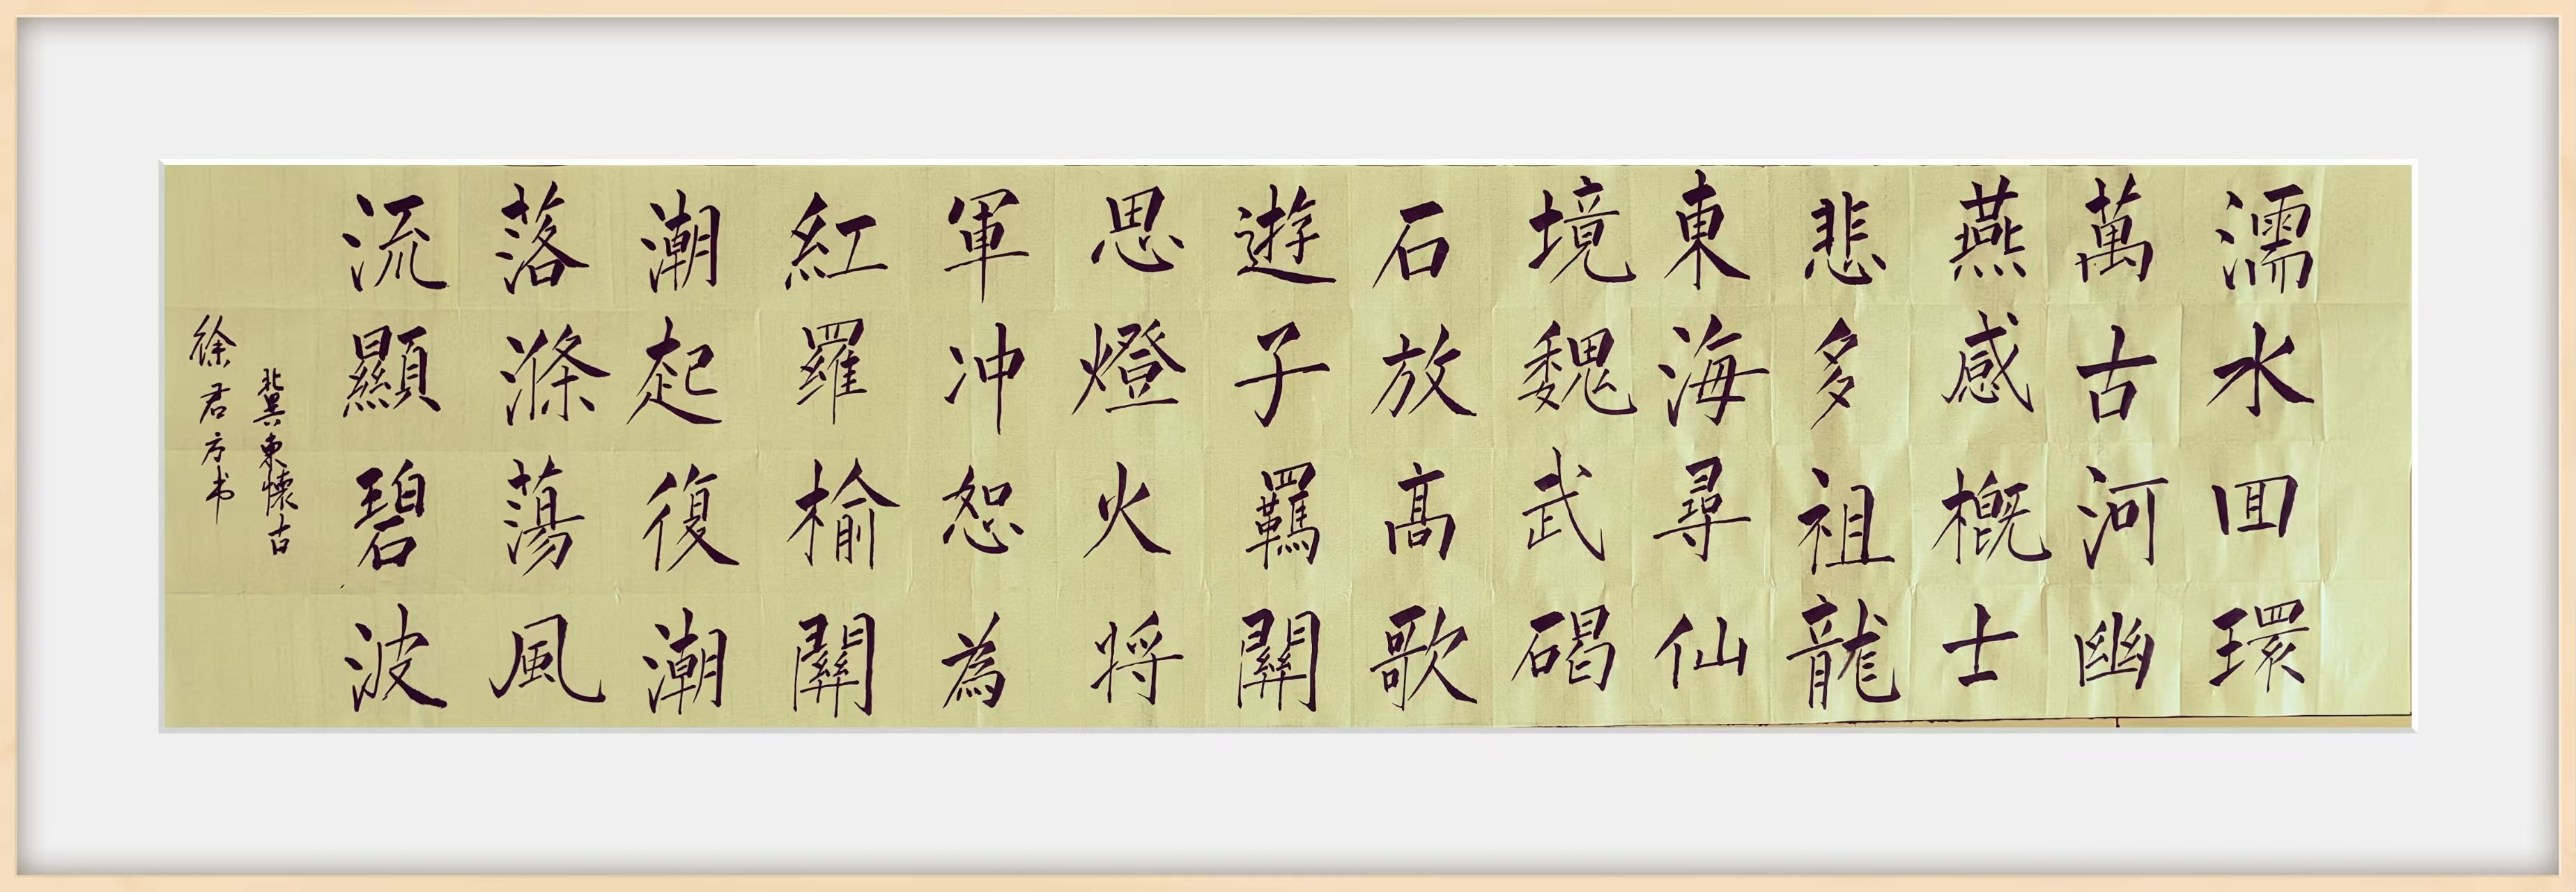 濡水回環
萬古河幽
燕感概士
悲多祖龍
東海尋仙
境魏武碣
石放高歌
遊子羈關
思燈火将
軍冲恕為
紅羅榆關
潮起復潮
落滌蕩風
流顯碧波
冀東懷古
徐君方书